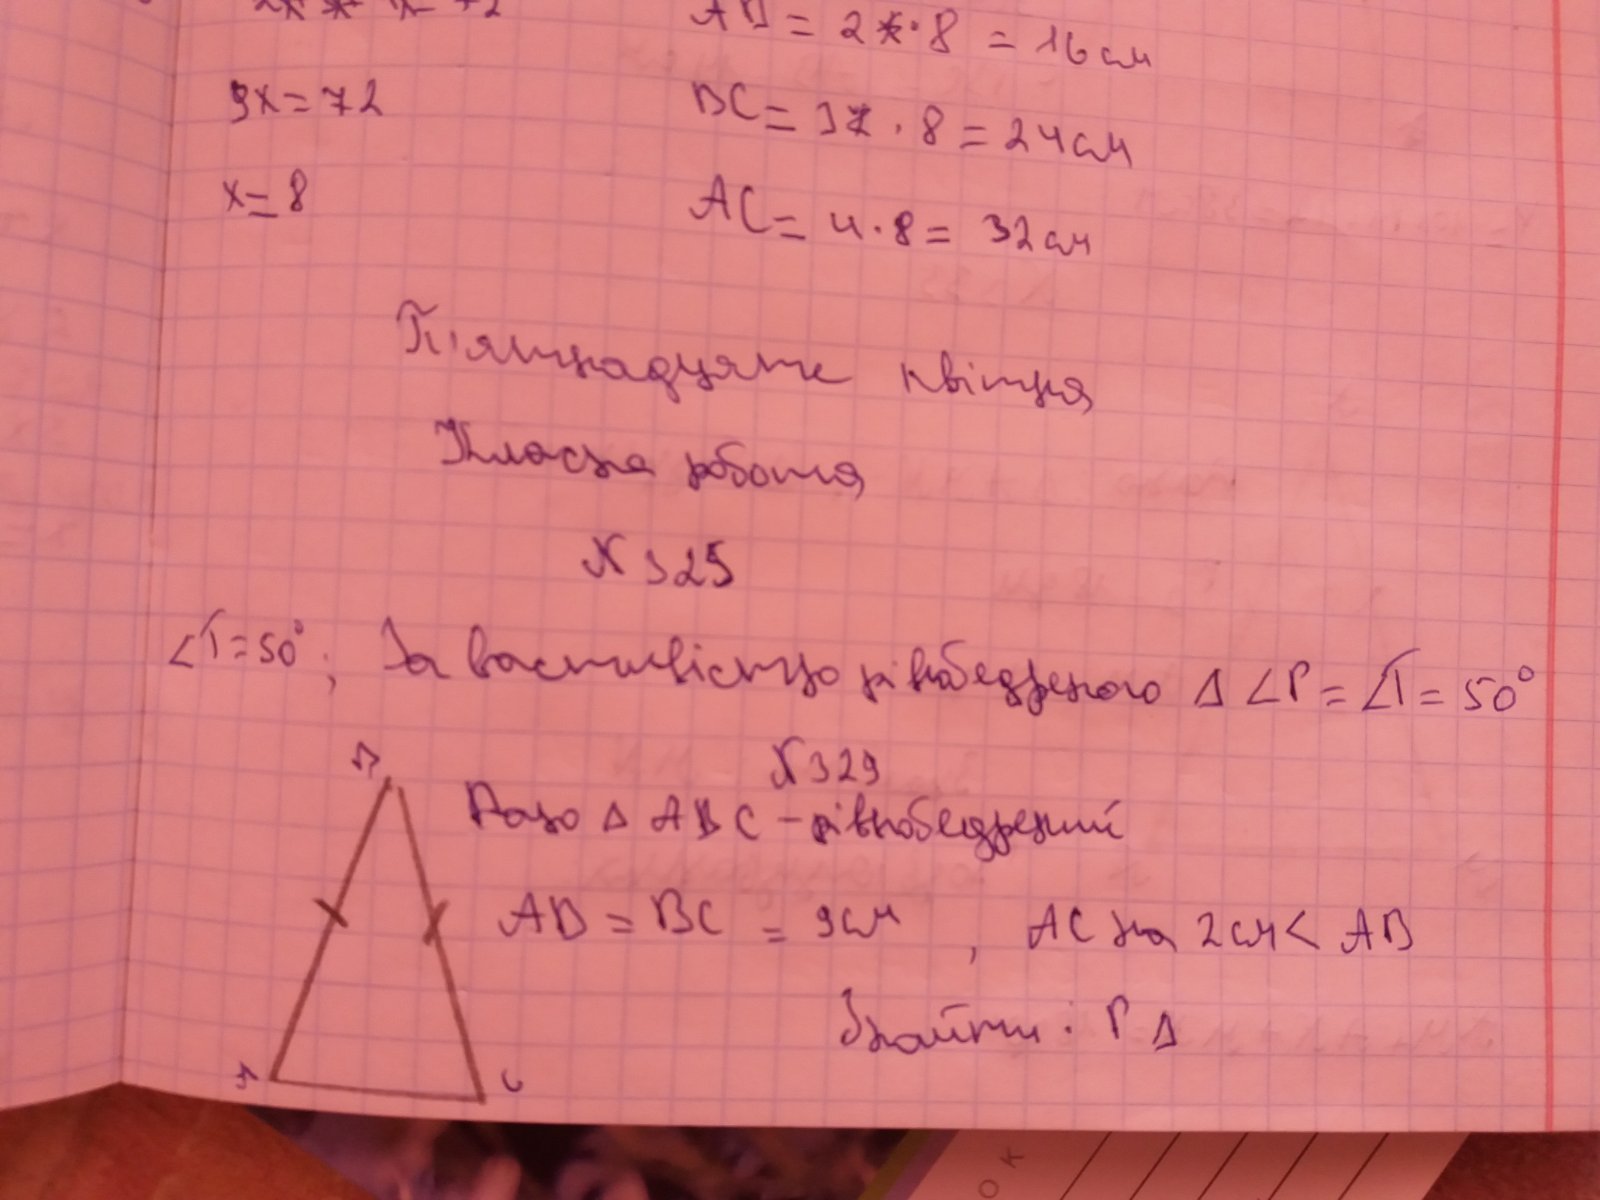 AB = 2x·8 = 16 см
9x = 72
BC = 3x·8 = 24 см
x = 8
AC = 4·8 = 32 см
П'ятнадцяте квітня
Класна робота
№ 325
∠T = 50°; За властивістю рівнобедреного Δ ∠P = ∠T = 50°
№ 329
B
Дано Δ ABC – рівнобедрений
AB = BC = 9 см, AC на 2 см < AB
Знайти: P Δ
A C
О К